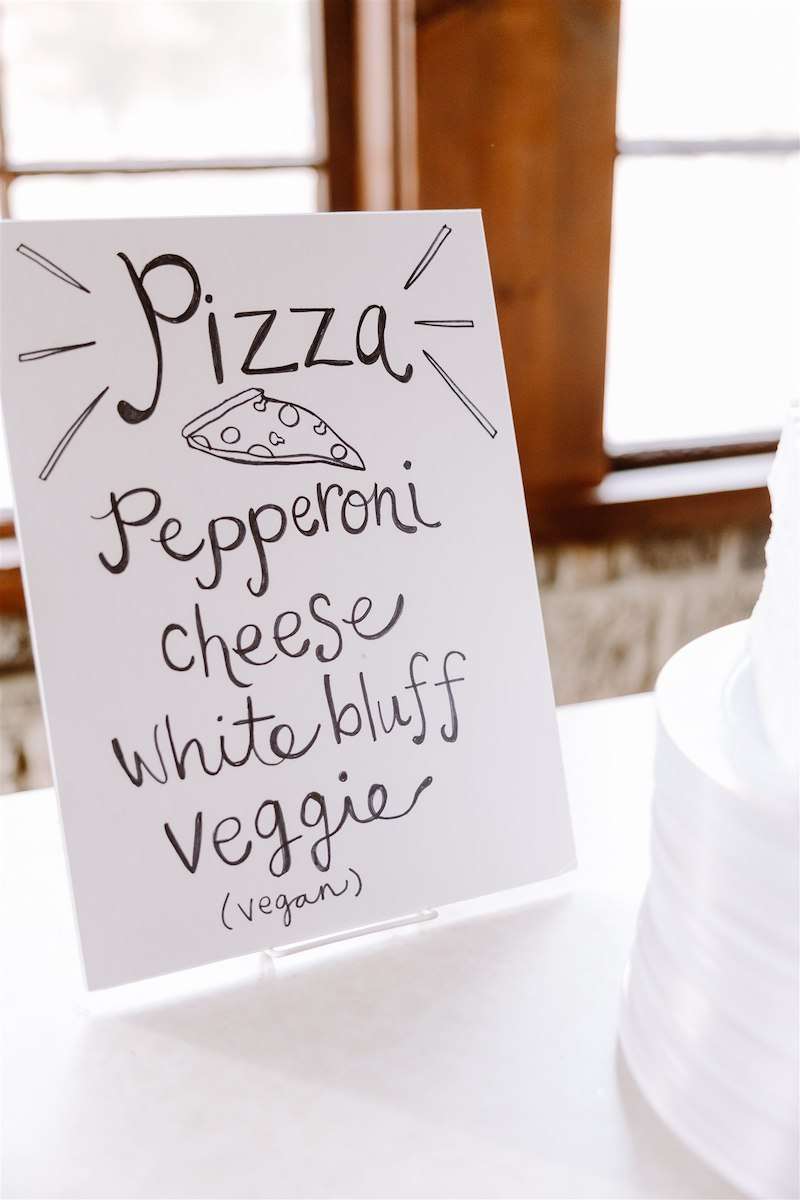 Pizza
Pepperoni
cheese
White bluff
veggie
(vegan)